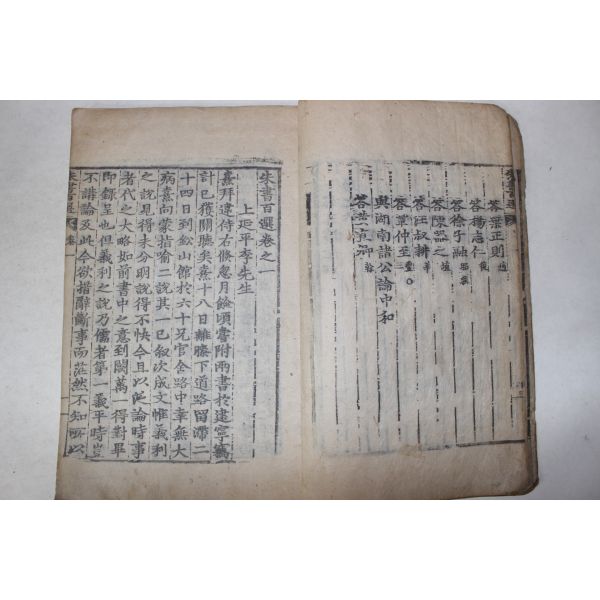 答葉正則 適
答楊志仁 復
答徐子融 昭然
答陳器之 埴
答汪叔耕 莘
答董仲至
與湖南諸公論中和
答黃直卿 榦
朱書百選卷之一
上延平李先生
熹拜違侍右倏忽月餘頃嘗附兩書於建寧竊
計已獲關聽矣熹十八日離膝下道路留滯二
十四日到鉛山館於六十兄官舍路中幸無大
病熹向蒙指喻二說其一已叙次成文惟義利
之說見得未分明說得不快今且以泛論時事
者代之大略如前書中之意到闕萬一得對畢
即錄呈也但義利之說乃儒者第一義平時豈
不講論及此今欲措辭斷事而茫然不知所以